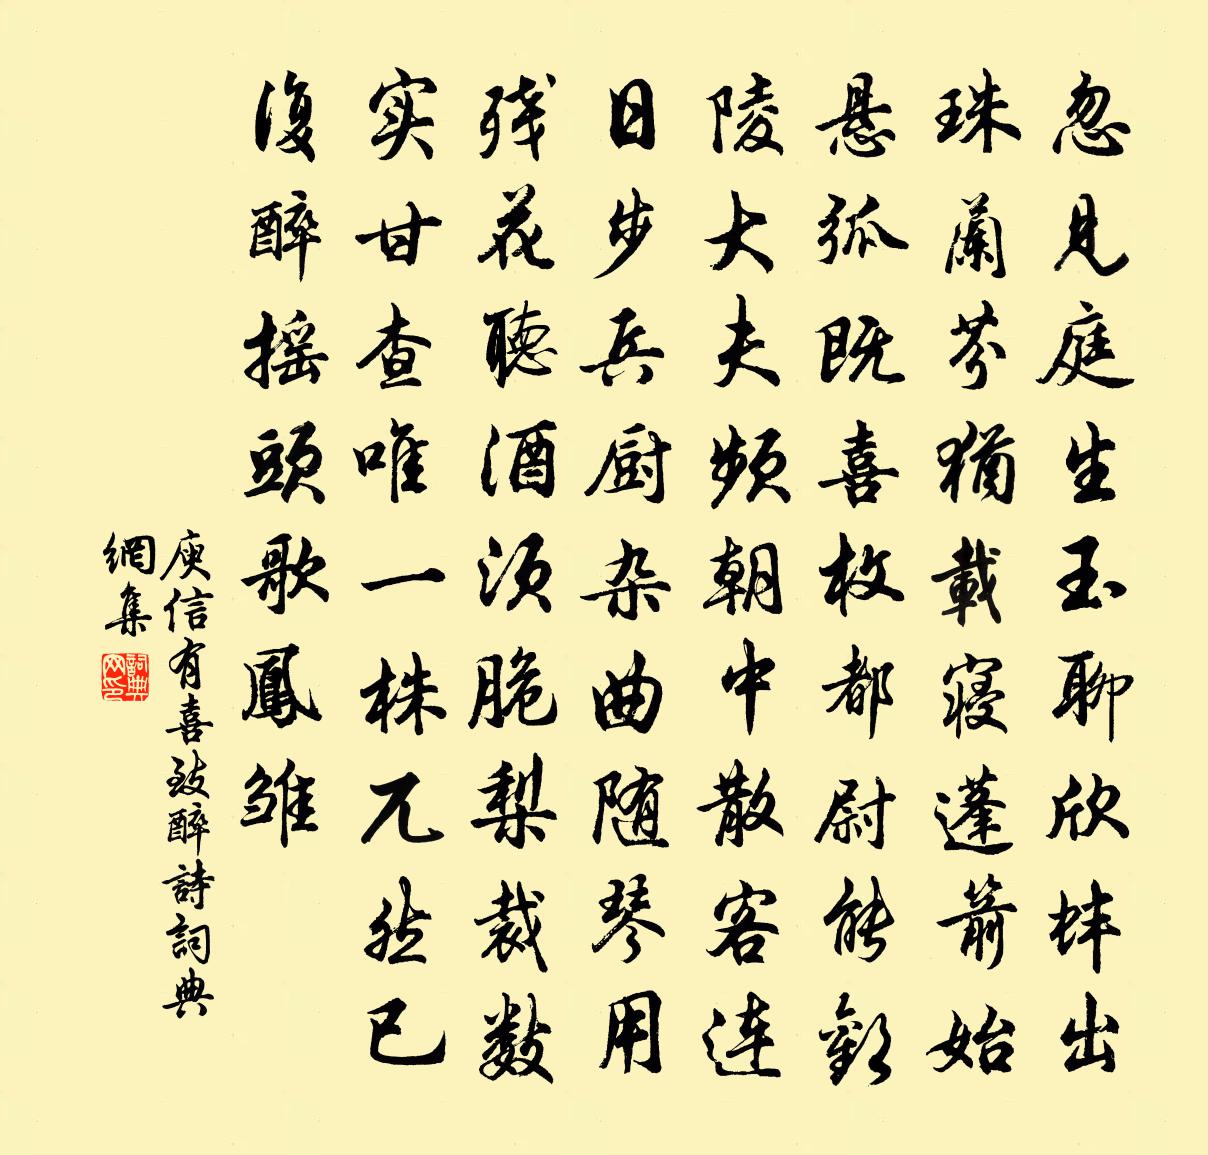 忽見庭生玉聊欣蚌出
珠蘭芬猶載寝蓬箭始
悬弧既喜枚都尉能歡
陵大夫频朝中散客連
日步兵厨杂曲随琴用
残花聽酒须脆梨裁数
实甘查唯一株兀然已
復醉摇頭歌鳳雏
庾信有喜致醉詩詞典
網集
詞典网印